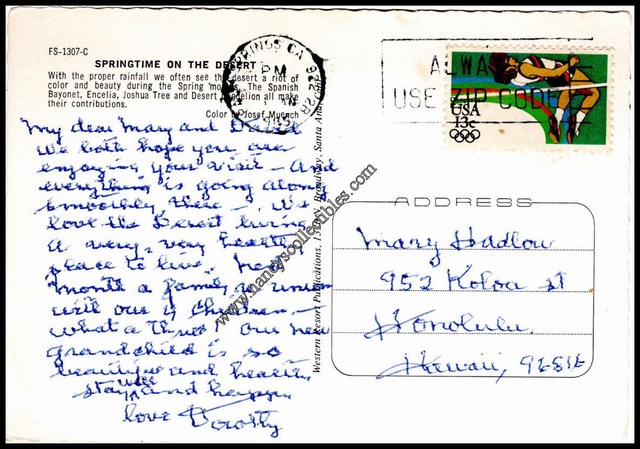 FS-1307-C
SPRINGTIME ON THE DESERT
With the proper rainfall we often see the desert a riot of
color and beauty during the Spring months. The Spanish
Bayonet, Encelia, Joshua Tree and Desert Dandelion all make
their contributions.
Color by Josef Muench
My dear Mary and David
We both hope you are
enjoying your visit - And
everything is going along
smoothly there - We
love the Desert living
a very, very healthy
place to live. Next
month a family
with our
what a thrill Our new
grandchild is so
beautiful and healthy
stay well and happy
love Dorothy
Western Resort Publications, Broadway, Santa Ana
www.nancyscollectibles.com
SPRINGS CA
PM
ALWAYS
USE ZIP CODE
USA
13c
ADDRESS
Mary Hadlow
952 Koloa st
Honolulu
Hawaii, 96816